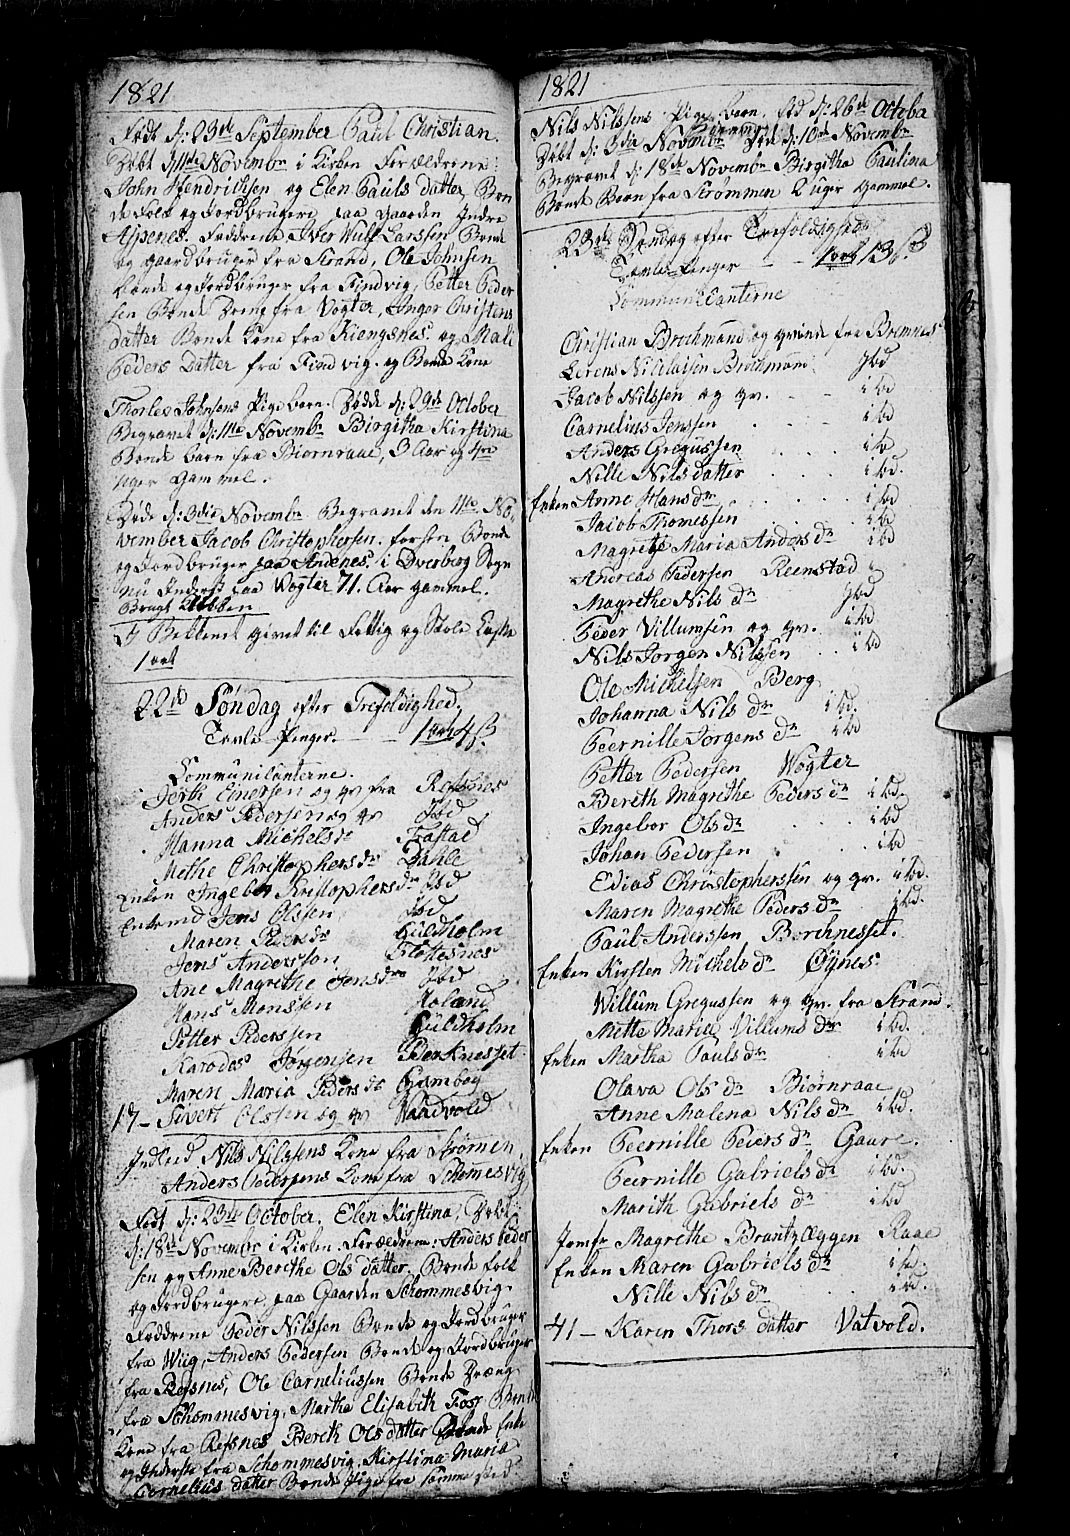 1821
Födt d: 23de September Paul Christian.
Döbt d: 11te Novembr i Kirken Forældrene
John Hendrichsen og Elen Pauls datter, Bon
de Folk og Jordbrugere paa Gaarden Indre
Aspenes. Faddrene Iver Wulf Larssen Bonde
og Gaardbruger fra Strand, Ole Johnsen
Bonde og Jordbruger fra Findvig, Petter Peder
sen Bonde Dreng fra Vogter, Inger Christens
datter Bonde Kone fra Kiengsnes. og Mali
Peders Datter fra Findvig. og Bonde Kone
Thorles Johnsens Pige barn. Døde d: 29de October
Begravet d: 11te Novembr Birgitha Kirstina
Bonde barn fra Biornraae, 3 Aar og 4re
uger Gammel.
Døde d: 3die Novembr Begravet den 11te No-
vember Jacob Christophersen. forhen Bonde
og Jordbruger paa Andenes. i Dverberg Sogn
nu Inderst paa Vogter 71. Aar Gammel.
Brugt Klokken
I Bekkenet givet til Fattig og Skole Kassen
1 ort
22de Søndag efter Trefoldighed.
Tavle Penger. 1 ort 4 ß
Communicanterne.
Jertk Einersen og qv fra Refsnes
Anders Pedersen og qv Ibd
Hanna Michelsdr Fastad
Methe Christophersdr Dahle
Enken Ingebor Kristophersdr Ibd
Enkemd Jens Olssen Ibd
Maren Pedersdr Guldholm
Jens Anderssøn Flottesnes
Ane Magrethe Jensdr Ibd
Hans Monssen Holand
Petter Pederssen Guldholm
Karodes Jørgensen Berknesset
Maren Maria Peders dr Gambog
17 - Sivert Olssen og qv Vaadvold
Indleed. Nils Nilssens Kone fra Strømen,
Anders Pedersens Kone fra Schomesvig
Født d: 23de October. Elen Kirstina, Døbt
d: 18de Novembr i Kirken. Forældrene. Anders Peder
sen og Anne Berethe Ols datter. Bonde folk
og Jordbrugere paa Gaarden Schommesvig.
Faddrene Peder Nilssen Bonde og Jordbruger
fra Wiig, Anders Pedersen Bonde og Jordbruger
fra Refsnes, Ole Corneliussen Bonde Dræng
fra Schommesvig, Martha Elisabeth Fog Bonde
Kone fra Refsnes Bereth Olsdatter Enke
og Inderste fra Schommesvig, Kirstina Maria
Cornelius datter Bonde Pige fra samme sted
1821
Nils Nilssens Pige barn. fød d: 26de Octoba
Døbt d: 3die Novembr Død d: 10de Novembr
Begravet d: 18de Novembr Birgitha Paulina
Bonde Barn fra Strommen 2 uger Gammel.
23de Søndag efter Trefoldighed
Tavle Penger 1 ort 13 ß
Communicanterne
Christian Brochmand og qvinde fra Bremnes
Lorens Nicolaisen Brochmann Ibd
Jacob Nilssen og qv. ibd
Cornelius Jenssen ibd
Anders Gregussen ibd
Nille Nils datter ibd.
Enken Anne Hans dr ibd
Jacob Thomessen ibd
Magrethe Maria Anders dr ibd
Andreas Pedersen Reenstad
Magrethe Nils dr Ibd
Peder Villumsen og qv. ibd
Nils Jorgen Nilssen ibd
Ole Michelsen Berg
Johanna Nils dr ibd.
Peernille Jorgens dr ibd
Petter Pedersen Vogter
Bereth Magrethe Peders dr ibd.
Ingebor Ols dr ibd
Johan Pedersen ibd
Edias Christopherssen og qv. ibd.
Maren Magrethe Peders dr ibd.
Paul Anderssen Borchnesset.
Enken Kirsten Michels dr Øynes.
Willum Gregussen og qv. fra Strand.
Mette Maria Villums dr ibd.
Enken Martha Pouls dr ibd
Olava Ols dr Biørnraae
Anne Malena Nils dr ibd.
Enken Peernille Peiers dr Gaare.
Peernille Gabriels dr ibd.
Marith Gabriels dr ibd
Jomfr Magrethe Brantzæggen Raae
Enken Maren Gabriels dr ibd.
Nille Nils dr ibd.
41 - Karen Thors datter Vatvold.